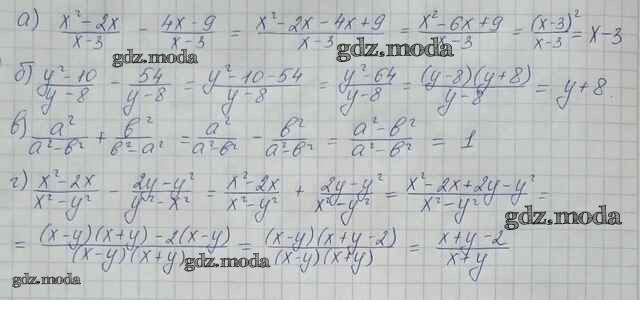 а) (x²-2x)/(x-3) - (4x-9)/(x-3) = (x²-2x-4x+9)/(x-3) = (x²-6x+9)/(x-3) = (x-3)²/(x-3) = x-3
gdz.moda gdz.moda
б) (y²-10)/(y-8) - 54/(y-8) = (y²-10-54)/(y-8) = (y²-64)/(y-8) = (y-8)(y+8)/(y-8) = y+8.
в) a²/(a²-в²) + в²/(в²-a²) = a²/(a²-в²) - в²/(a²-в²) = (a²-в²)/(a²-в²) = 1
г) (x²-2x)/(x²-y²) - (2y-y²)/(y²-x²) = (x²-2x)/(x²-y²) + (2y-y²)/(x²-y²) = (x²-2x+2y-y²)/(x²-y²) =
gdz.moda
= ((x-y)(x+y)-2(x-y))/((x-y)(x+y)) = (x-y)(x+y-2)/((x-y)(x+y)) = (x+y-2)/(x+y)
gdz.moda
gdz.moda